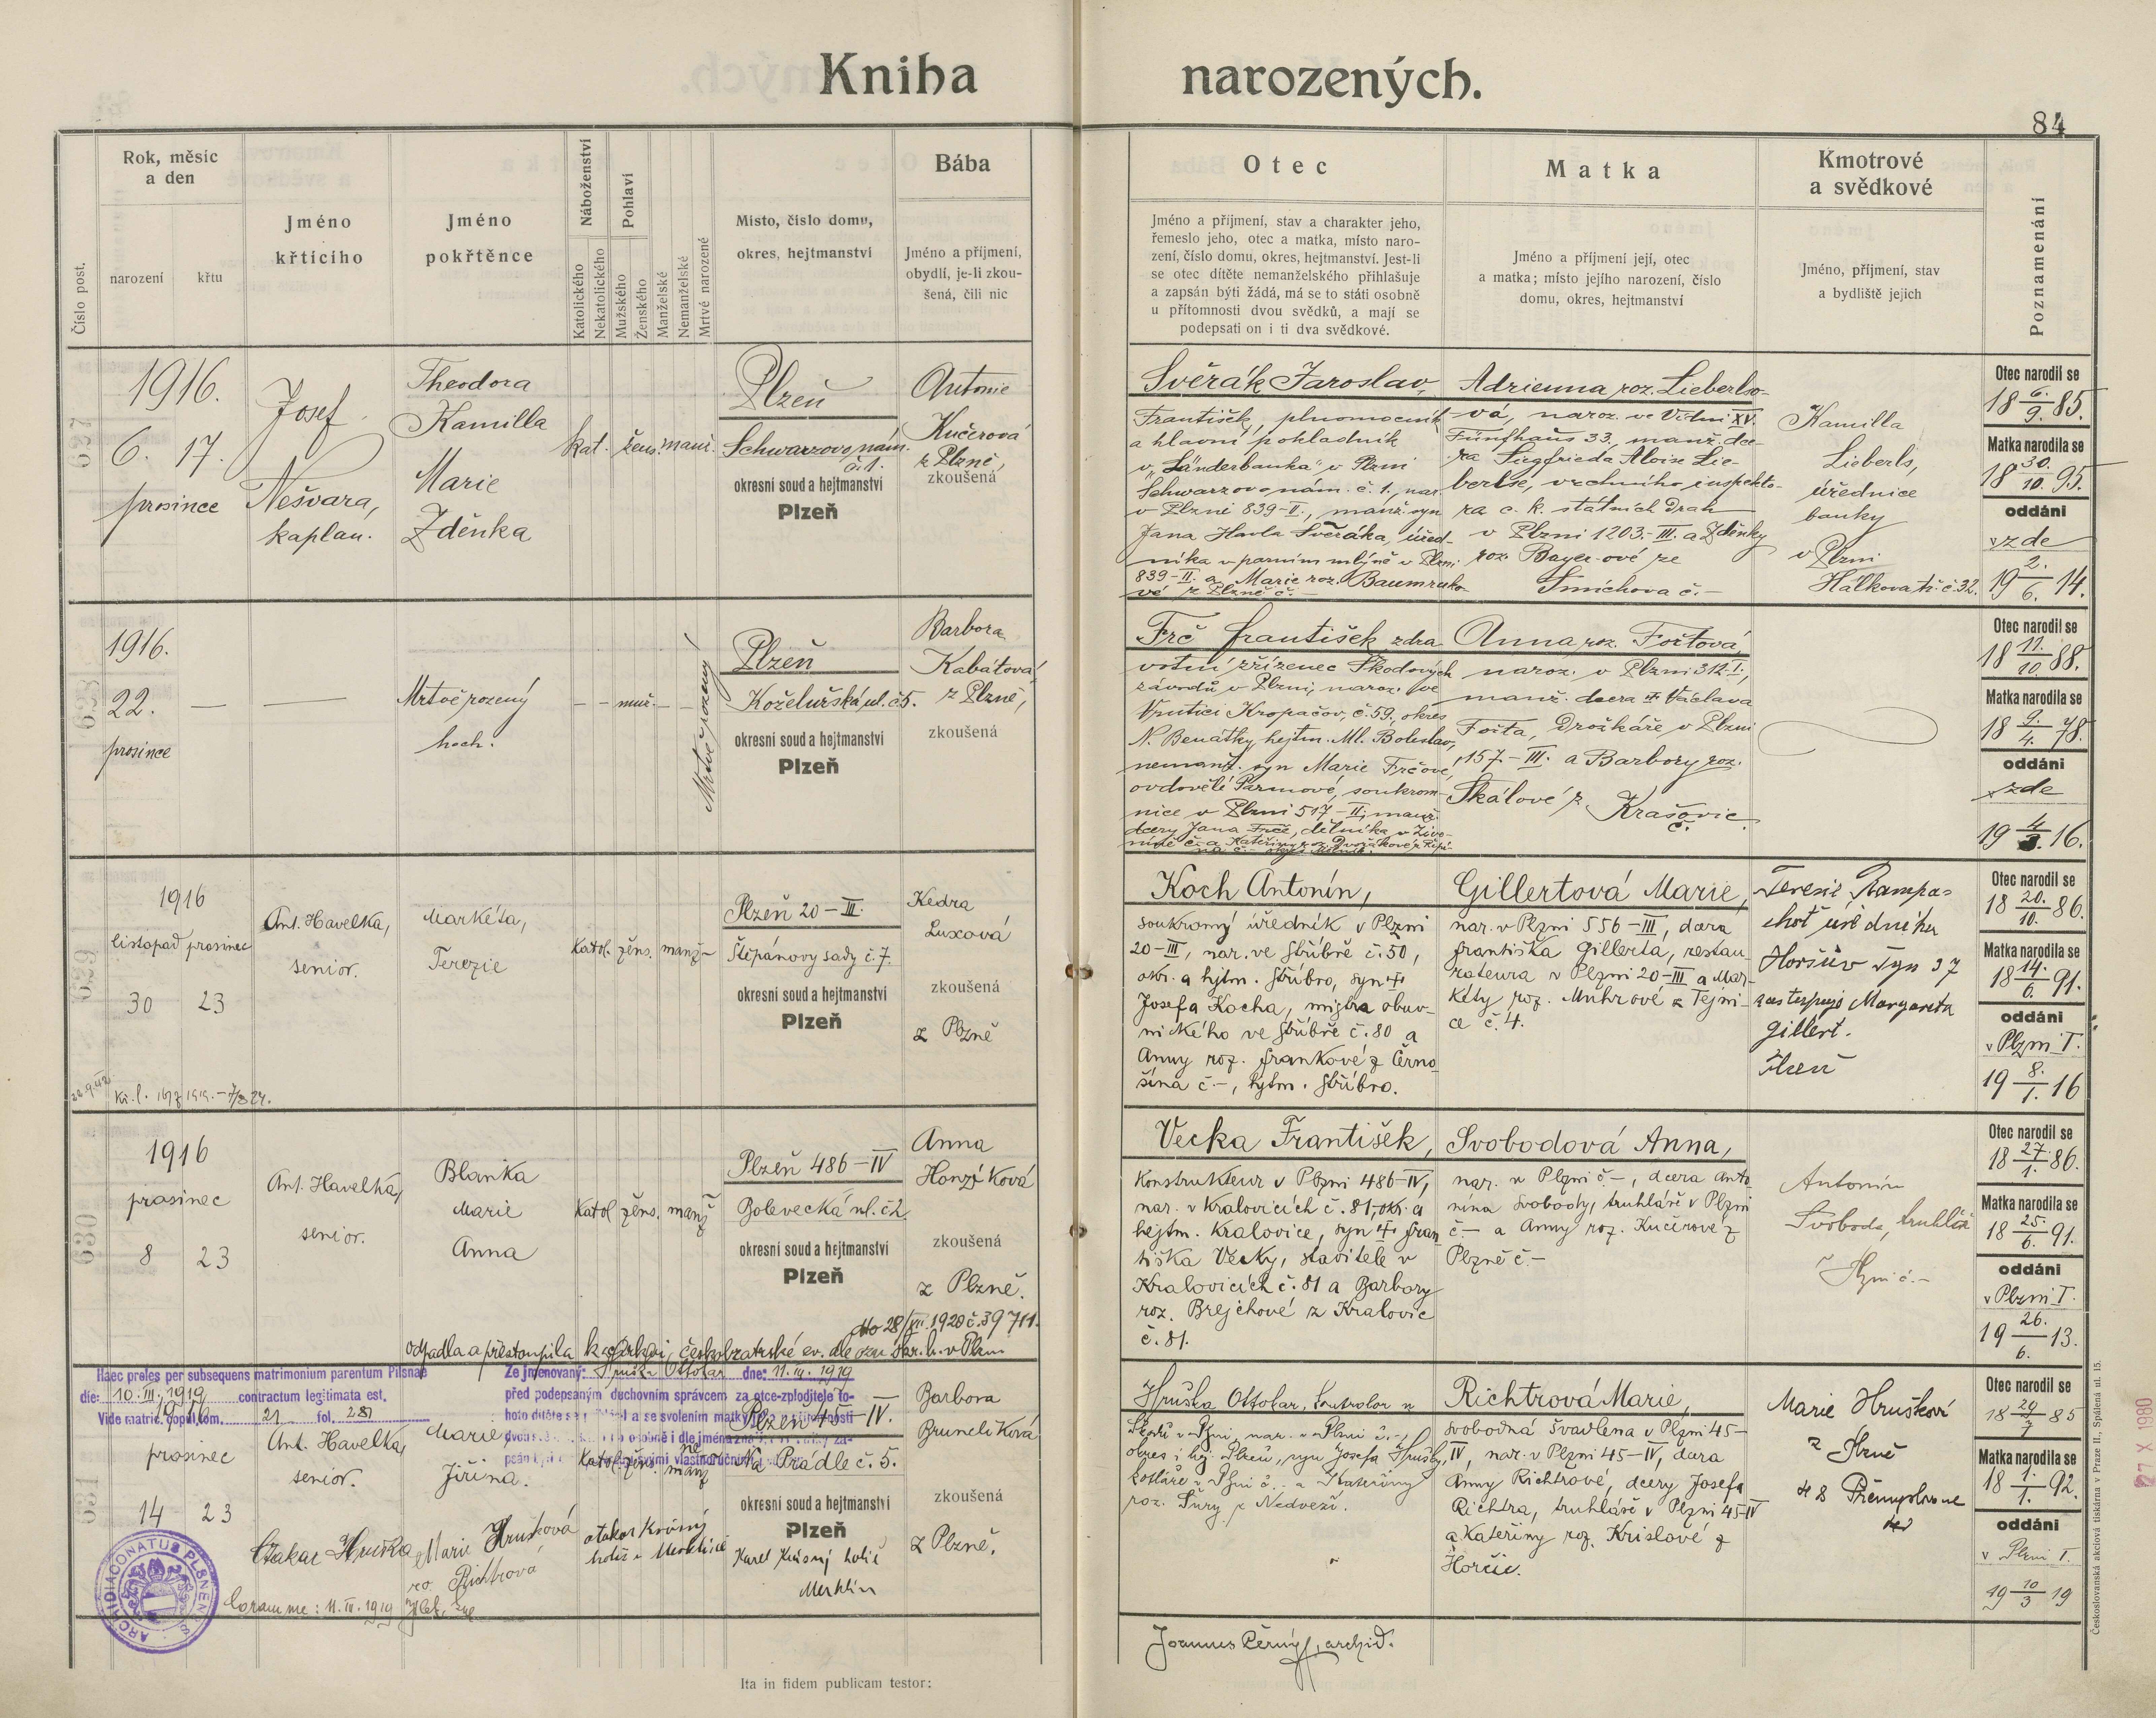 Kniha narozených.
84
Číslo post.
Rok, měsíc
a den
narození
křtu
Jméno
křtícího
Jméno
pokřtěnce
Náboženství
Katolického
Nekatolického
Pohlaví
Mužského
Ženského
Manželské
Nemanželské
Mrtvě narozené
Místo, číslo domu,
okres, hejtmanství
Bába
Jméno a příjmení,
obydlí, je-li zkou-
šená, čili nic
Otec
Jméno a příjmení, stav a charakter jeho,
řemeslo jeho, otec a matka, místo naro-
zení, číslo domu, okres, hejtmanství. Jest-li
se otec dítěte nemanželského přihlašuje
a zapsán býti žádá, má se to státi osobně
u přítomnosti dvou svědků, a mají se
podepsati on i ti dva svědkové.
Matka
Jméno a příjmení její, otec
a matka; místo jejího narození, číslo
domu, okres, hejtmanství
Kmotrové
a svědkové
Jméno, příjmení, stav
a bydliště jejich
Poznamenání
627
1916.
6. 17.
prosince
Josef
Nešvara,
kaplan.
Theodora
Kamilla
Marie
Zděnka
kat. žens. manž.
Plzeň
Schwarzovo nám.
č. 1.
okresní soud a hejtmanství
Plzeň
Antonie
Kučerová
z Plzně,
zkoušená
Svěrák Jaroslav,
František, plnomocník
a hlavní pokladník
v „Länderbanka" v Plzni
Schwarzovo nám. č. 1., nar.
v Plzni 839-II., manž. syn
Jana Havla Svěráka, úřed-
níka v parním mlýně v Plzni
839-II. a Marie roz. Baumruko-
vé z Plzně č. –
Adrienna roz. Lieberlso-
vá, naroz. ve Vídni XV.
Fünfhaus 33., manž. dce-
ra Siegfrieda Aloise Lie-
berlse, vrchního inspekto-
ra c. k. státních drah
v Plzni 1203.-III. a Zděnky
roz. Bayer-ové ze
Smíchova č. –
Kamilla
Lieberls,
úřednice
banky
v Plzni
Hálkova tř. č. 32.
Otec narodil se
18 6./9. 85.
Matka narodila se
18 30./10. 95.
oddáni
v zde
19 2./6. 14.
628
1916.
22. —
prosince
—
Mrtvě rozený
hoch.
– – muž. – –
Mrtvě rozený
Plzeň
Koželužská ul. č 5.
okresní soud a hejtmanství
Plzeň
Barbora
Kabátová,
z Plzně,
zkoušená
Frč František, zdra-
votní zřízenec Škodových
závodů v Plzni, naroz. ve
Vrutici Kropáčov, č. 59, okres
N. Benátky, hejtm. Ml. Boleslav,
nemanž. syn Marie Frčové,
ovdovělé Parmové, soukrom-
nice v Plzni 517-II; manž.
dcery Jana Frče, dělníka v Živo-
Anna roz. Foštová,
naroz. v Plzni 312. I.,
manž. dcera † Václava
Fošta, drožkáře v Plzni
157.-III. a Barbory roz.
Skálové z Krašovic
č.
Otec narodil se
18 11./10. 88.
Matka narodila se
18 9./4. 78.
oddáni
v zde
19 4./3. 16.
629
1916
listopad prosinec
30 23
Ant. Havelka,
senior.
Markéta,
Terezie
Katol. žens. manž –
Plzeň 20 – III.
Štěpánovy sady č. 7.
okresní soud a hejtmanství
Plzeň
Kedra
Luxová
zkoušená
z Plzně
Koch Antonín,
soukromý úředník v Plzni
20-III, nar. ve Stříbře č. 50,
okr. a hejtm. Stříbro, syn †
Josefa Kocha, mistra obuv-
nického ve Stříbře č. 80 a
Anny roz. Frankové z Černo-
šína č –, hejtm. Stříbro.
Gillertová Marie,
nar. v Plzni 556 – III, dcera
Františka Gillerta, restau-
ratéura v Plzni 20-III a Mar-
kéty roz. Muhrové z Tejni-
ce č. 4.
Terezie Rampa-
choť úředníka
Horšův Týn 37
zastupuje Margareta
Gillert.
Plzeň
Otec narodil se
18 20./10. 86.
Matka narodila se
18 14./6. 91.
oddáni
v Plzni I.
19 8./1. 16
630
1916
prosinec
8 23
Ant. Havelka,
senior.
Blanka
Marie
Anna
Katol. žens. manž
Plzeň 486 – IV
Bolevecká ul. č 2.
okresní soud a hejtmanství
Plzeň
Anna
Honzíková
zkoušená
z Plzně.
dto 28/XII. 1920 č. 39711.
odpadla a přestoupila k církvi českobratrské ev. dle ozn. v Plzni
Vecka František,
Konstrukteur v Plzni 486-IV,
nar. v Kralovicích č. 81, okr. a
hejtm. Kralovice, syn † Fran-
tiška Vecky, stavitele v
Kralovicích č. 81 a Barbory
roz. Brejchové z Kralovic
č. 81.
Svobodová Anna,
nar. v Plzni č. –, dcera Anto-
nína Svobody, truhláře v Plzni
č – a Anny roz. Kučerové z
Plzně č. –
Antonín
Svoboda, truhlář
v Plzni č. –
Otec narodil se
18 27./1. 86.
Matka narodila se
18 25./6. 91.
oddáni
v Plzni I.
19 26./6. 13.
631
Haec proles per subsequens matrimonium parentum Pilsnae
die: 10. III. 1919 contractum legitimata est.
Vide matric. copul. tom. 21 fol. 281
Ze jmenovaný: Hruška Ottokar dne: 11. III. 1919
před podepsaným duchovním správcem za otce-zploditele to-
hoto dítěte se a se svolením matky
1916
prosinec
14 23
Ant. Havelka,
senior.
Marie,
Jiřina.
Katol. žens. ne manž
Plzeň 45 – IV.
Na Prádle č. 5.
okresní soud a hejtmanství
Plzeň
Barbora
Brunclíková
zkoušená
z Plzně.
Otakar Hruška
Marie Hrušková
roz. Richtrová
Otakar Krásný
holič v Merklíně
Karel Krásný holič
Merklín
Coram me: 11. III. 1919
ARCHIDIACONATUS PLSNENSIS
Hruška Ottokar, kontrolor u
Škodů v Plzni, nar. v Plzni č. –,
okres i hej. Plzeň, syn Josefa Hrušky,
kotláře v Plzni č. – a Kateřiny
roz. Šůry z Nedvězí.
Richtrová Marie,
svobodná švadlena v Plzni 45-
IV, nar. v Plzni 45-IV, dcera
Anny Richtrové, dcery Josefa
Richtra, truhláře v Plzni 45-IV
a Kateřiny roz. Krislové z
Horčic.
Marie Hrušková
z Plzně
48 Přemyslova
Otec narodil se
18 29/7 85
Matka narodila se
18 1./1. 92.
oddáni
v Plzni I.
19 10/3 19
Joannes Černý, archid.
Ita in fidem publicam testor:
Československá akciová tiskárna v Praze II., Spálená ul. 15.
27 X 1980